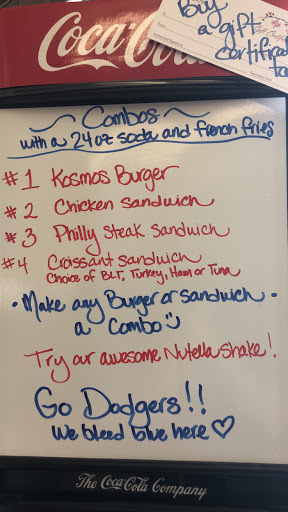 Coca-Cola
Buy
a gift
certificate
Combos
with a 24oz soda and french fries
#1 Kosmos Burger
#2 Chicken Sandwich
#3 Philly Steak Sandwich
#4 Croissant Sandwich
Choice of BLT, Turkey, Ham or Tuna
• Make any Burger or Sandwich •
a Combo
Try our awesome Nutella Shake!
Go Dodgers!!
We bleed blue here ♡
The Coca-Cola Company